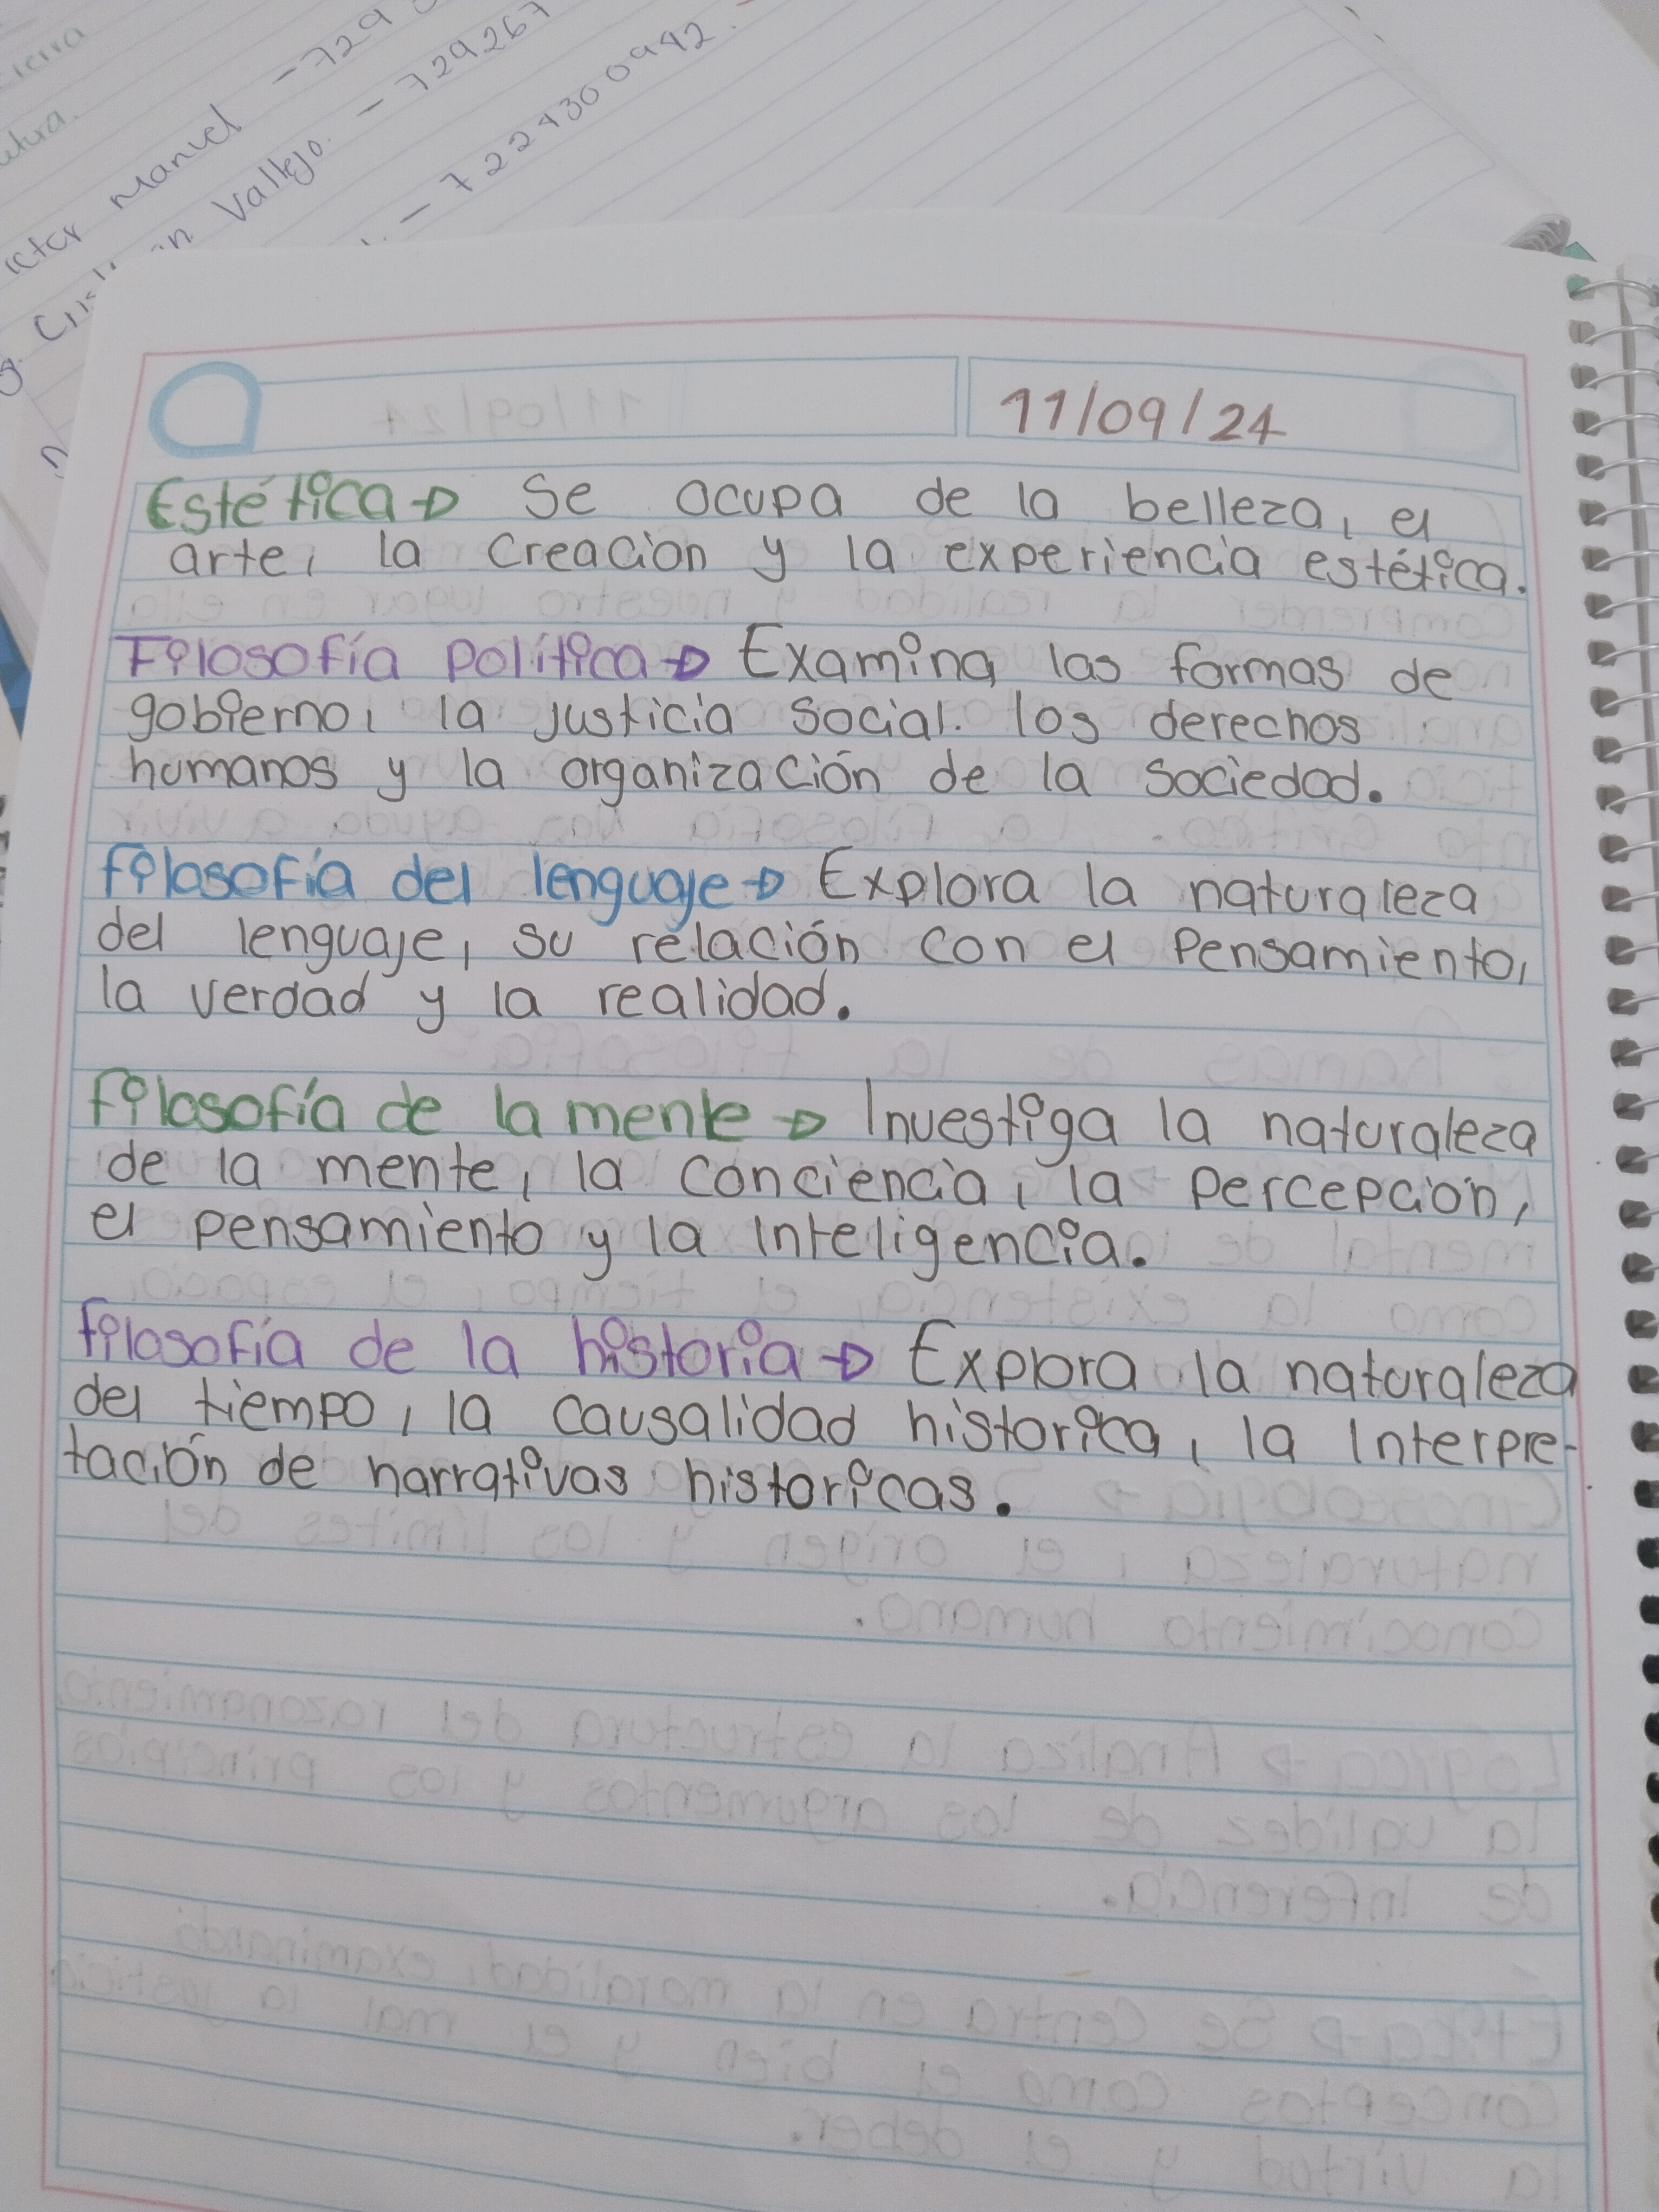 Manuel - 729
Vallejo. - 729267
- 7224300942.
11/09/24
Estética → Se ocupa de la belleza, el
arte, la creación y la experiencia estética.
Filosofía política → Examina las formas de
gobierno, la justicia social. los derechos
humanos y la organización de la sociedad.
filosofía del lenguaje → Explora la naturaleza
del lenguaje, su relación con el pensamiento,
la verdad y la realidad.
filosofía de la mente → Investiga la naturaleza
de la mente, la conciencia, la percepción,
el pensamiento y la inteligencia.
filosofía de la historia → Explora la naturaleza
del tiempo, la causalidad historica, la interpre-
tación de narrativas historicas.